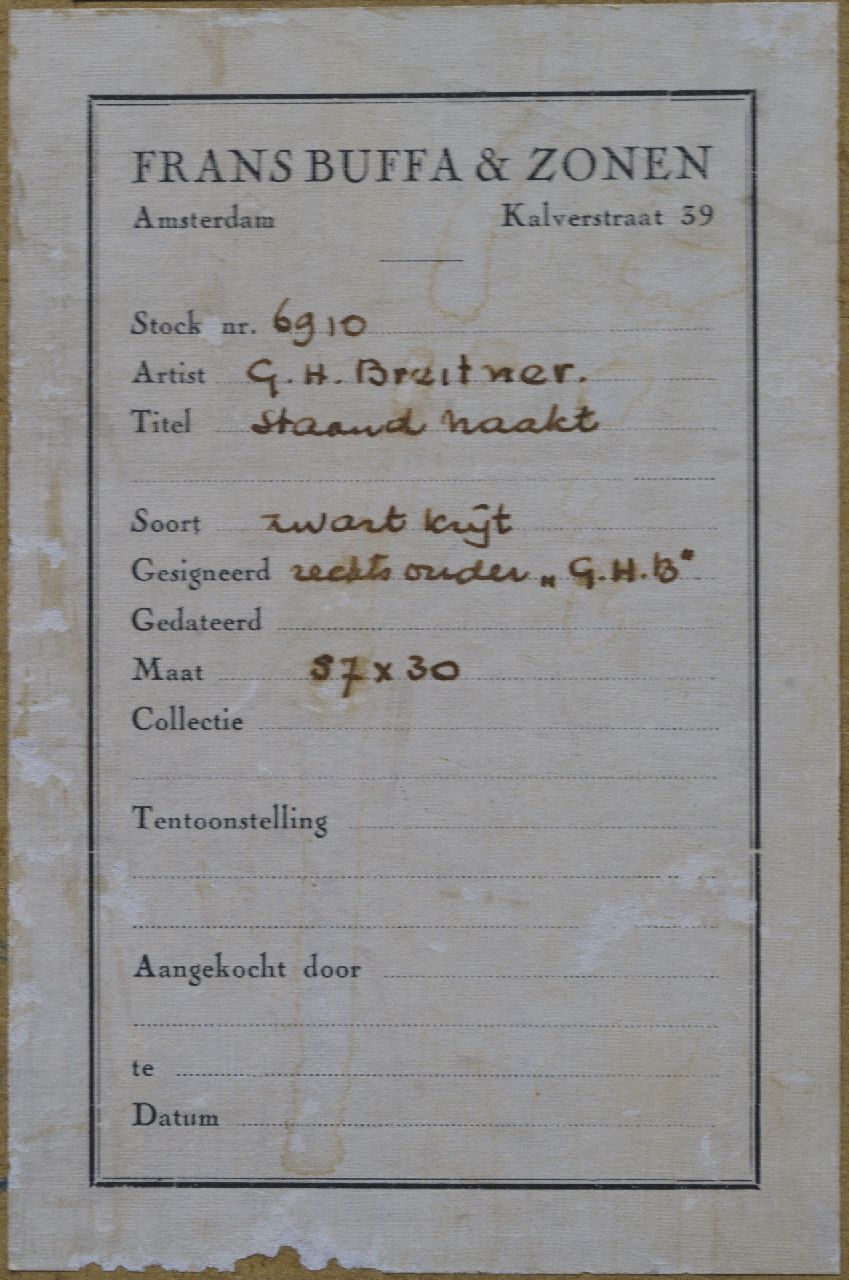 FRANS BUFFA & ZONEN
Amsterdam Kalverstraat 39
Stock nr. 6910
Artist G. H. Breitner.
Titel Staand Naakt
Soort zwart krijt
Gesigneerd rechts onder „G.H.B"
Gedateerd
Maat 57 x 30
Collectie
Tentoonstelling
Aangekocht door
te
Datum